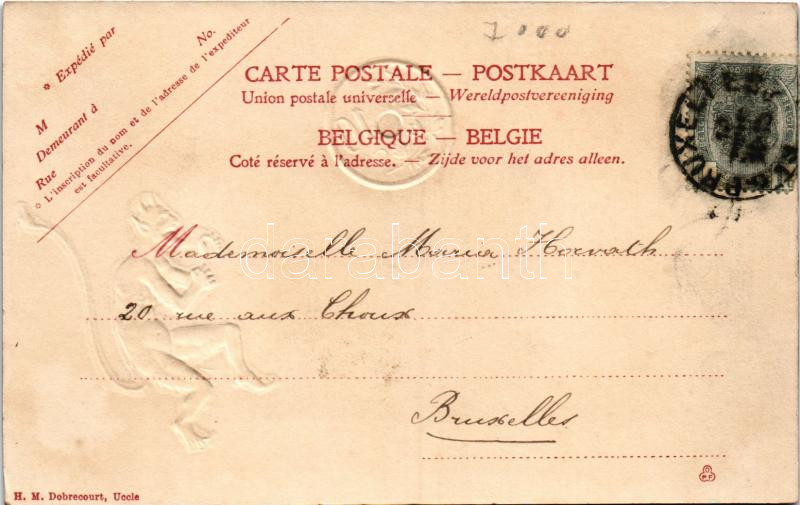 * Expédié par
No.
M
Demeurant à
Rue
* L'inscription du nom et de l'adresse de l'expediteur
est facultative.
CARTE POSTALE — POSTKAART
Union postale universelle — Wereldpostvereeniging
BELGIQUE — BELGIE
Coté réservé à l'adresse. — Zijde voor het adres alleen.
Mademoiselle Maria Horvath
20 rue aux Choux
Bruxelles
H. M. Dobrecourt, Uccle
P.F
darabanth